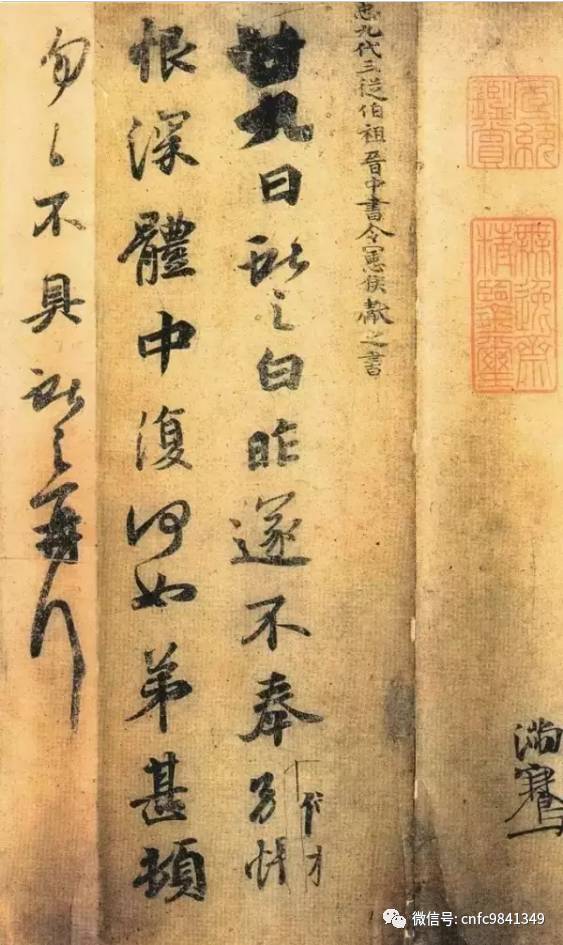 宣統鑒賞
無逸齋精鑒璽
滿騫
九代三從伯祖晉中書令憲侯獻之書
廿九日獻之白昨遂不奉別悵
恨深體中復何如弟甚頓
匆匆不具獻之再拜
微信号: cnfc9841349